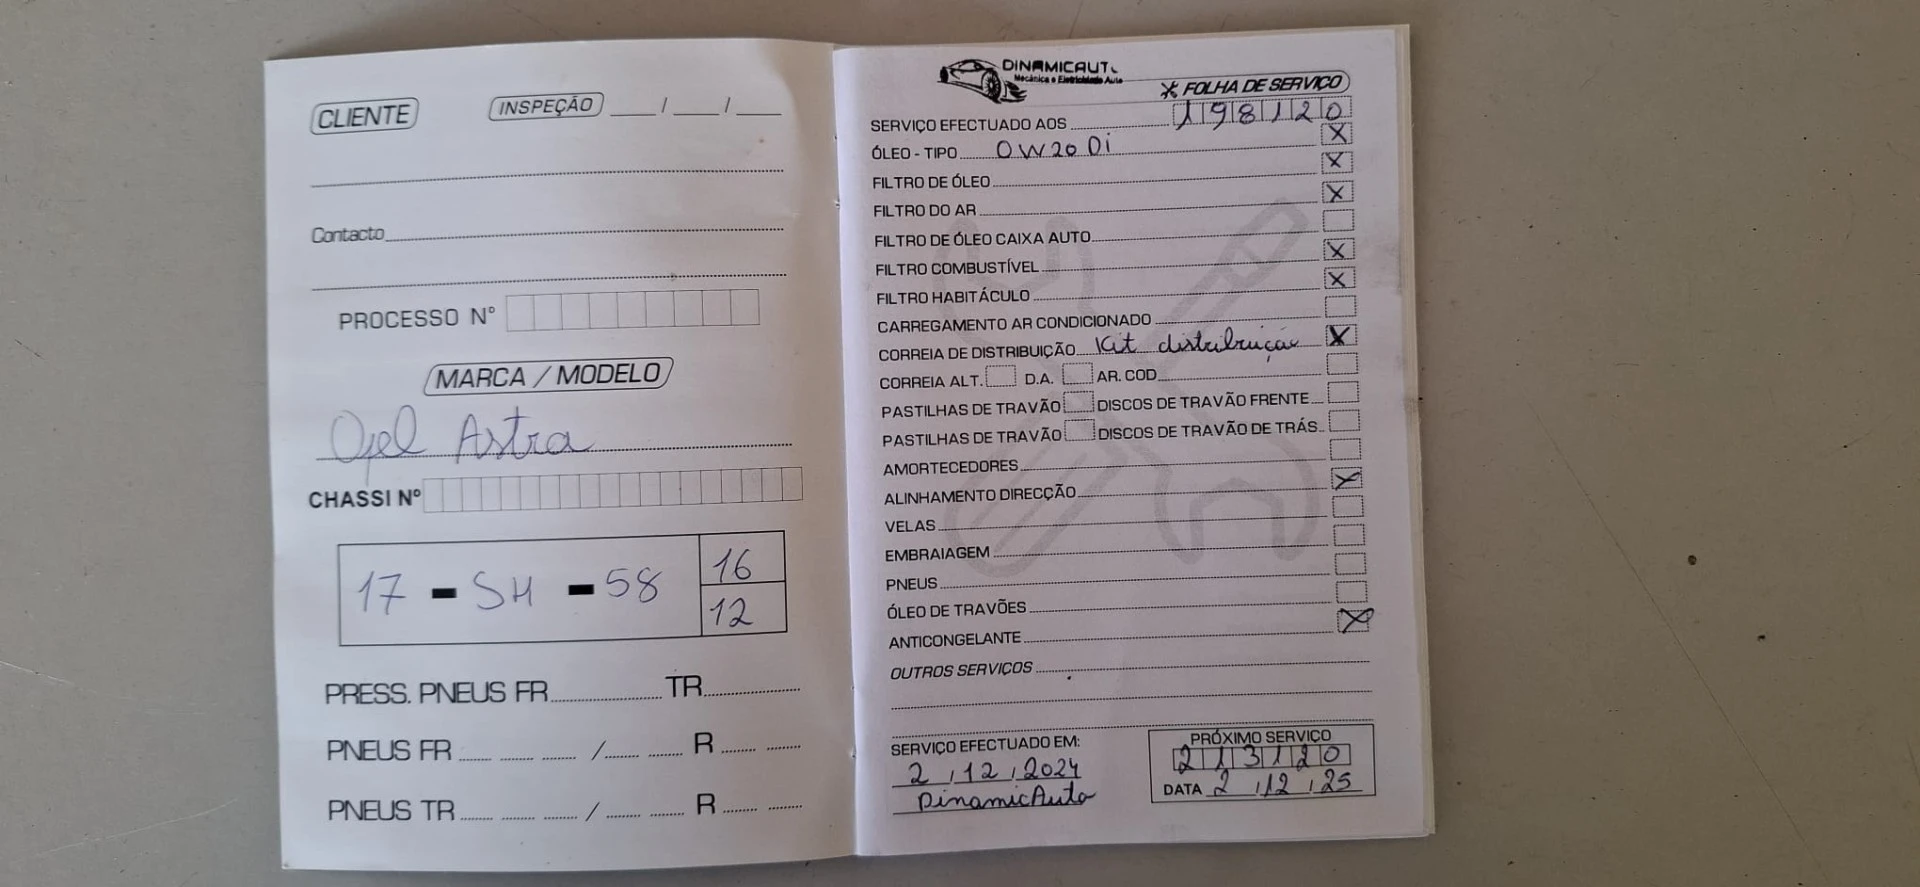 CLIENTE INSPEÇÃO ___ / ___ / ___
Contacto
PROCESSO Nº
MARCA / MODELO
Opel Astra
CHASSI Nº
17 - SH - 58 16
12
PRESS. PNEUS FR TR
PNEUS FR / R
PNEUS TR / R
DINAMICAUTO
Mecânica e Eletricidade Auto
FOLHA DE SERVIÇO
SERVIÇO EFECTUADO AOS 198120
ÓLEO - TIPO 0W20 Di X
FILTRO DE ÓLEO X
FILTRO DO AR X
FILTRO DE ÓLEO CAIXA AUTO
FILTRO COMBUSTÍVEL X
FILTRO HABITÁCULO X
CARREGAMENTO AR CONDICIONADO
CORREIA DE DISTRIBUIÇÃO Kit distribuição X
CORREIA ALT. D.A. AR. COD
PASTILHAS DE TRAVÃO DISCOS DE TRAVÃO FRENTE
PASTILHAS DE TRAVÃO DISCOS DE TRAVÃO DE TRÁS
AMORTECEDORES
ALINHAMENTO DIRECÇÃO X
VELAS
EMBRAIAGEM
PNEUS
ÓLEO DE TRAVÕES
ANTICONGELANTE X
OUTROS SERVIÇOS
SERVIÇO EFECTUADO EM:
2 / 12 / 2024
DinamicAuto
PRÓXIMO SERVIÇO
213120
DATA 2 / 12 / 25